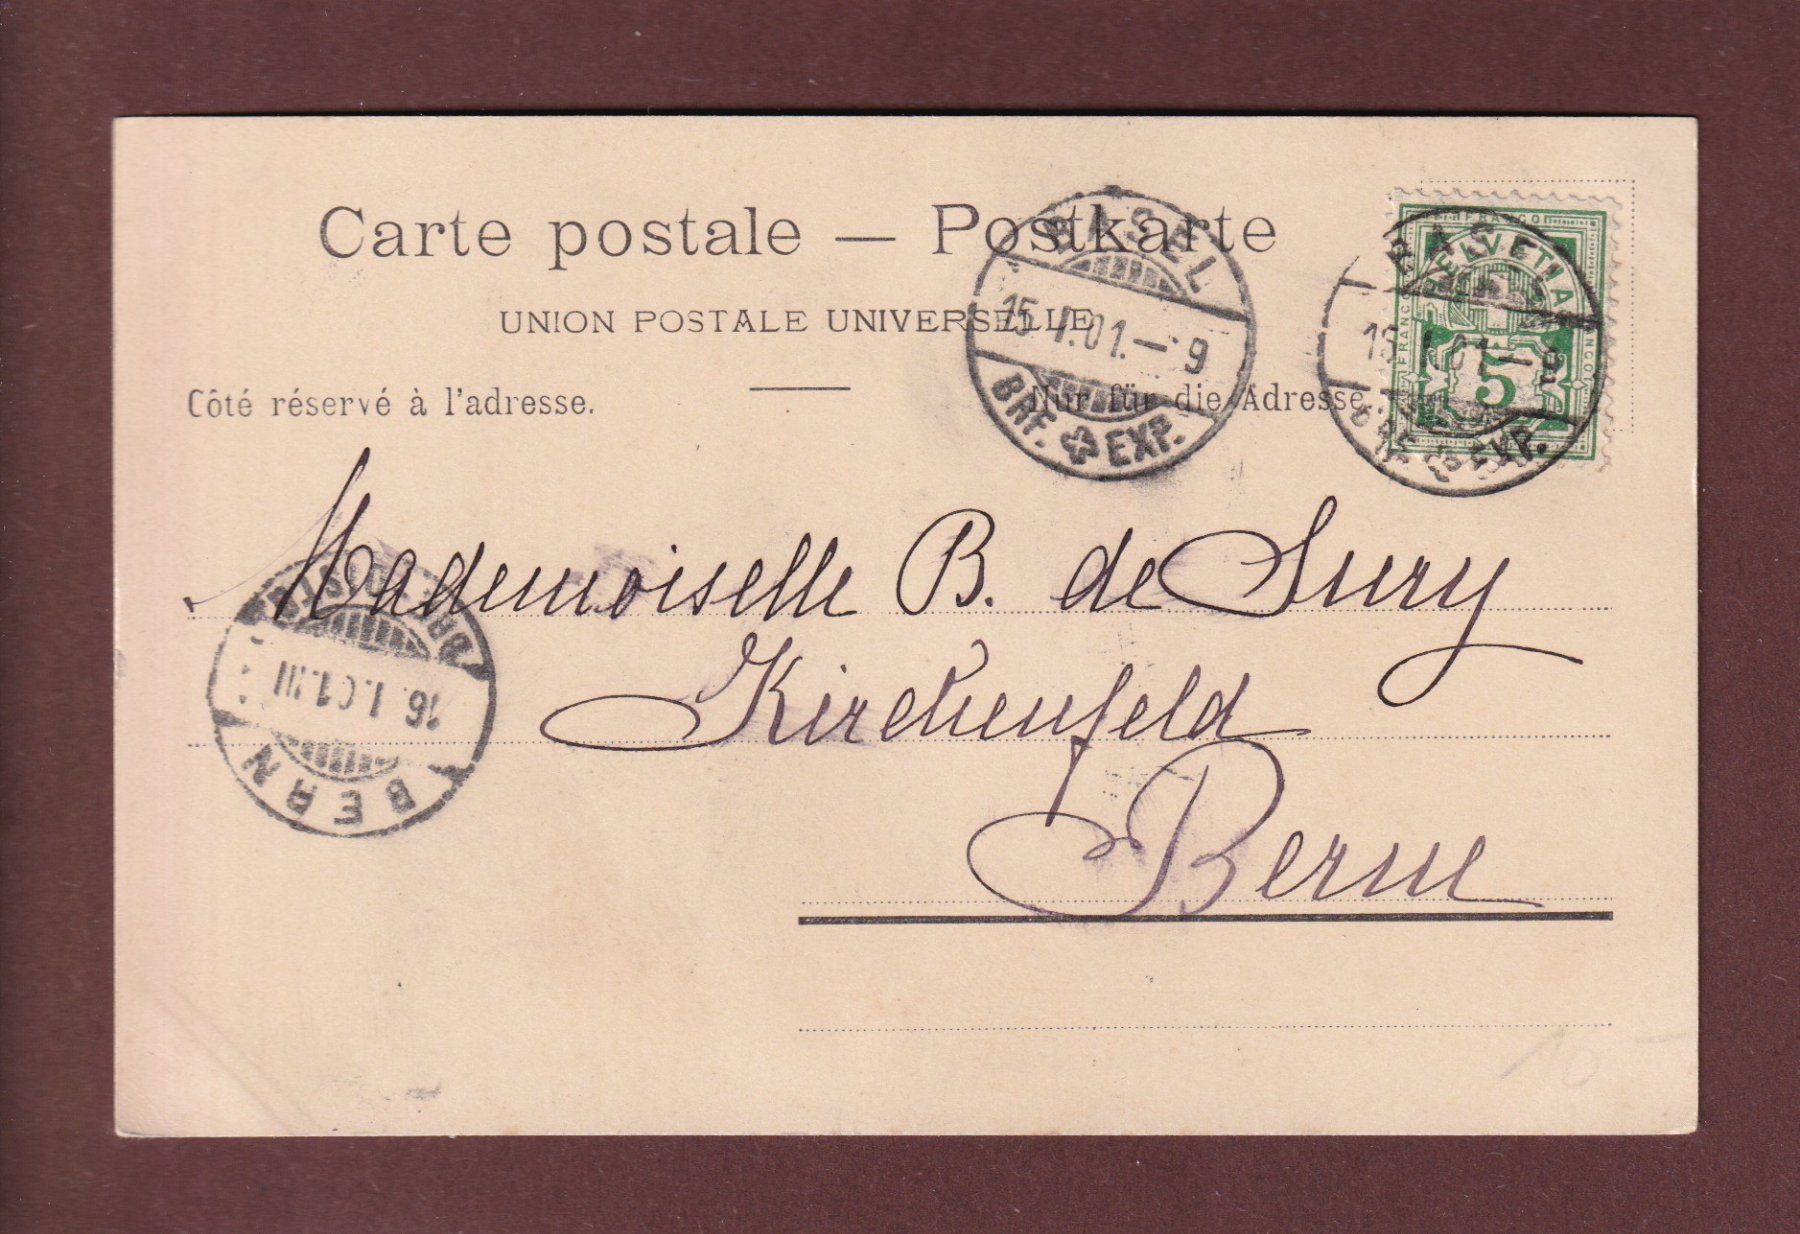 Carte postale — Postkarte
UNION POSTALE UNIVERSELLE
Côté réservé à l'adresse.
Nur für die Adresse.
BASEL
15. I. 01. — 9
BRF. EXP.
BASEL
15. I. 01. — 9
BRF. EXP.
FRANCO
HELVETIA
FRANCO
FRANCO
5
Mademoiselle B. de Sury
Kirchenfeld
Berne
BERN
16. I. 01. III
10 -